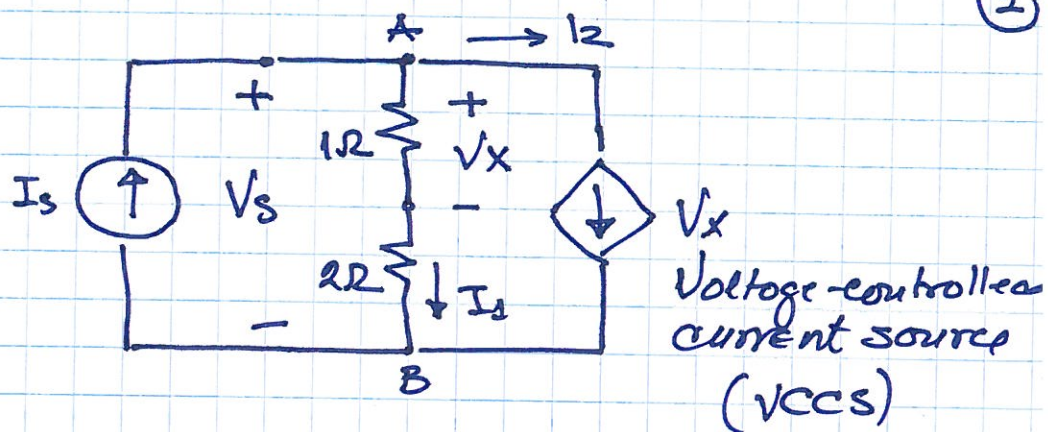 1
A → I2
+ +
1Ω Vx
Is Vs
- Vx
2Ω I1 Voltage-controlled
- current source
B
(VCCS)